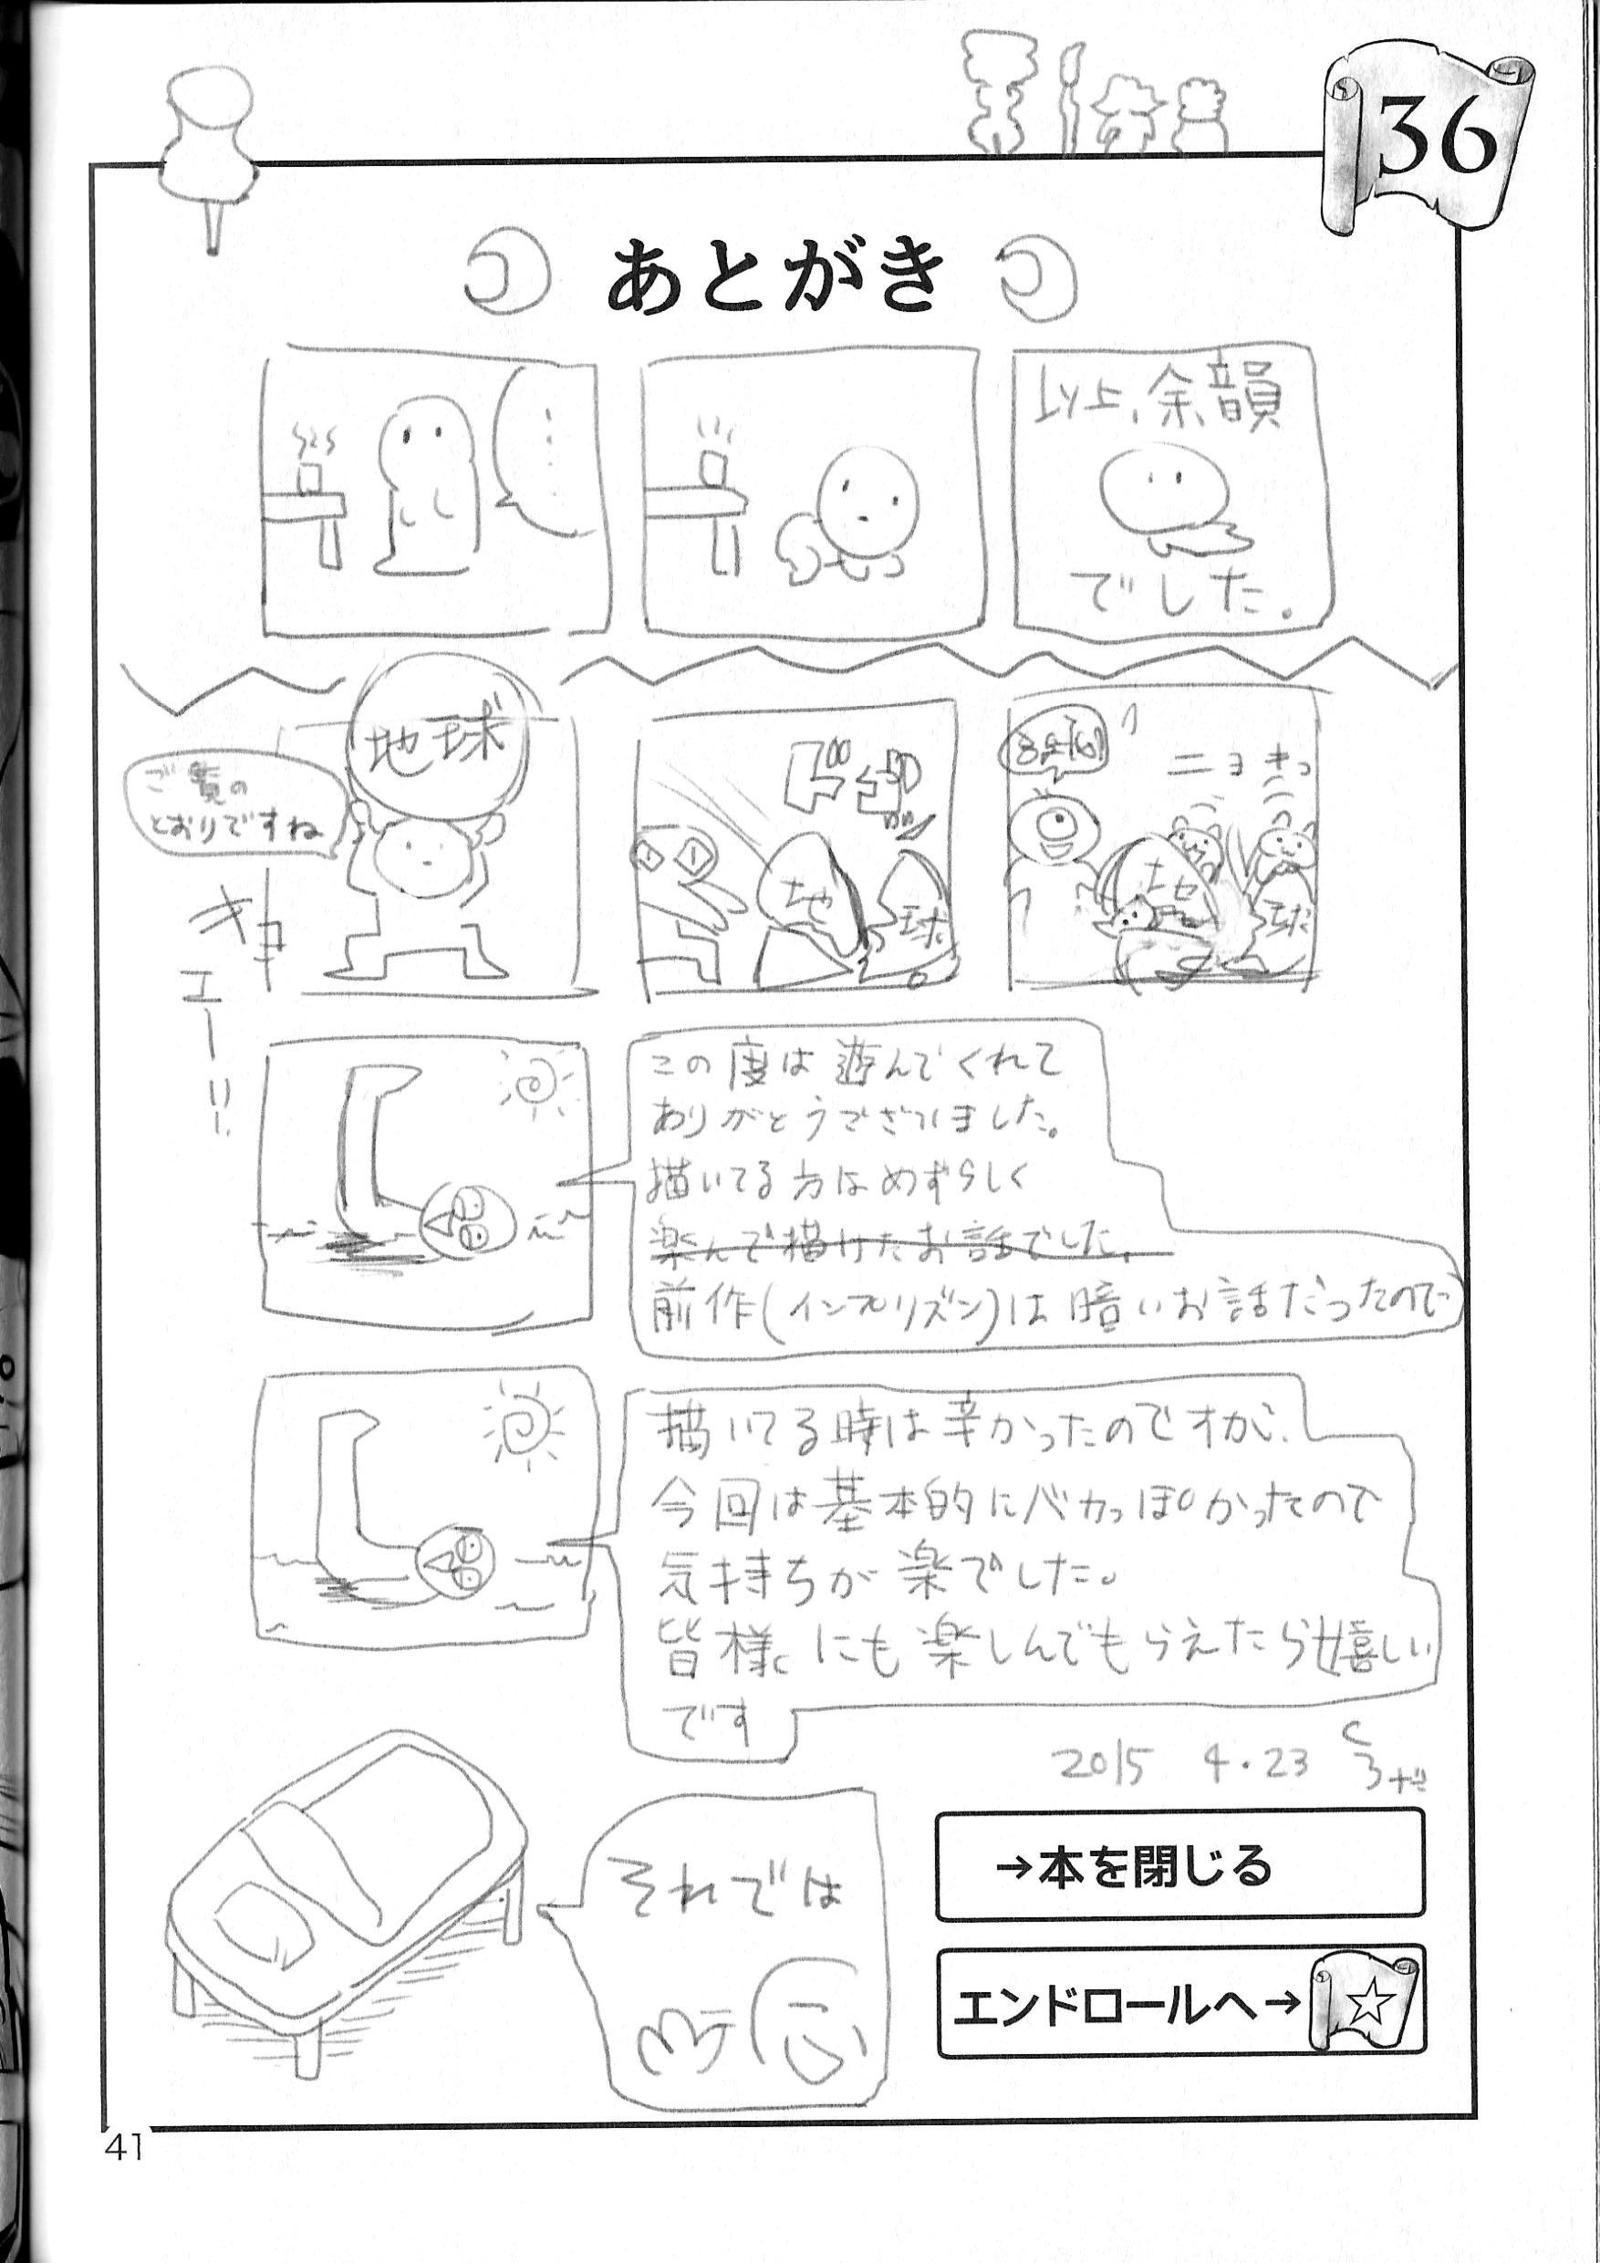 36
あとがき
……
以上、余韻
でした。
地球
ご覧の
とおりですね
地
球
ニョキっ
地
球
この度は遊んでくれて
ありがとうございました。
描いてる方はめずらしく
楽んで描けたお話でした。
前作(インプリズン)は暗いお話だったので
描いてる時は辛かったのですが、
今回は基本的にバカっぽかったので
気持ちが楽でした。
皆様にも楽しんでもらえたら嬉しい
です
2015 4・23
それでは
→本を閉じる
エンドロールへ→
41